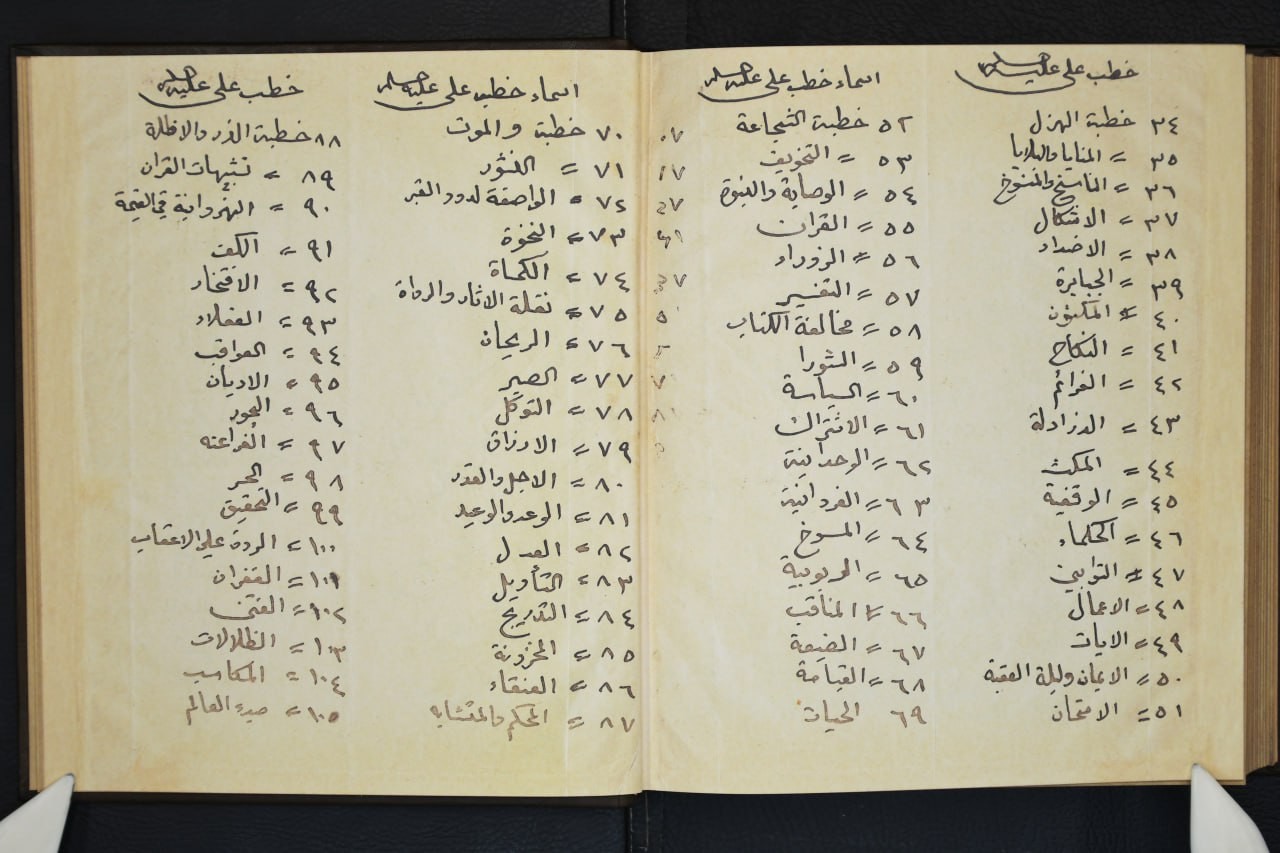 خطب على عليه السلام
٣٤ خطبة الهزل
٣٥ = المنايا والبلايا
٣٦ = الناسخ والمنسوخ
٣٧ = الاشكال
٣٨ = الاضداد
٣٩ = الجبابرة
٤٠ = المكنون
٤١ = النكاح
٤٢ = الغرائم
٤٣ =
٤٤ = المكث
٤٥ = الوقفية
٤٦ = الحكماء
٤٧ = التوابين
٤٨ = الاعمال
٤٩ = الايات
٥٠ = الايمان وليلة العقبة
٥١ = الامتحان
اسماء خطب على عليه السلام
٥٢ خطبة الشجاعة
٥٣ = التخويف
٥٤ = الوصاية والنبوة
٥٥ = القران
٥٦ = الزوراء
٥٧ = التفسير
٥٨ = مخالفة الكتاب
٥٩ = الشورا
٦٠ = السياسة
٦١ = الاشتراك
٦٢ = الوحدانية
٦٣ = الفردانية
٦٤ = المسوخ
٦٥ = الربوبية
٦٦ = المناقب
٦٧ =
٦٨ = القيامة
٦٩ الحيات
اسماء خطب على عليه السلام
٧٠ خطبة والموت
٧١ = النشور
٧٢ = الواصفة لدود القبر
٧٣ = النخوة
٧٤ = الكماة
٧٥ = نقلة الاثار والرواة
٧٦ = الريحان
٧٧ = الصبر
٧٨ = التوكل
٧٩ = الارزاق
٨٠ = الاجل والقدر
٨١ = الوعد والوعيد
٨٢ = العدل
٨٣ = التأويل
٨٤ = التدريج
٨٥ = المخزونة
٨٦ = العنقاء
٨٧ = المحكم والمتشابه
خطب على عليه السلام
٨٨ خطبة الذر والاظلة
٨٩ = تشبيهات القران
٩٠ = النهروانية
٩١ = الكف
٩٢ = الافتخار
٩٣ = العقلاء
٩٤ = العواقب
٩٥ = الاديان
٩٦ =
٩٧ = الفراعنه
٩٨ =
٩٩ = التحقيق
١٠٠ = الردة على الاعقاب
١٠١ = القفران
١٠٢ = الفتن
١٠٣ = الظلالات
١٠٤ = المكاسب
١٠٥ = العالم